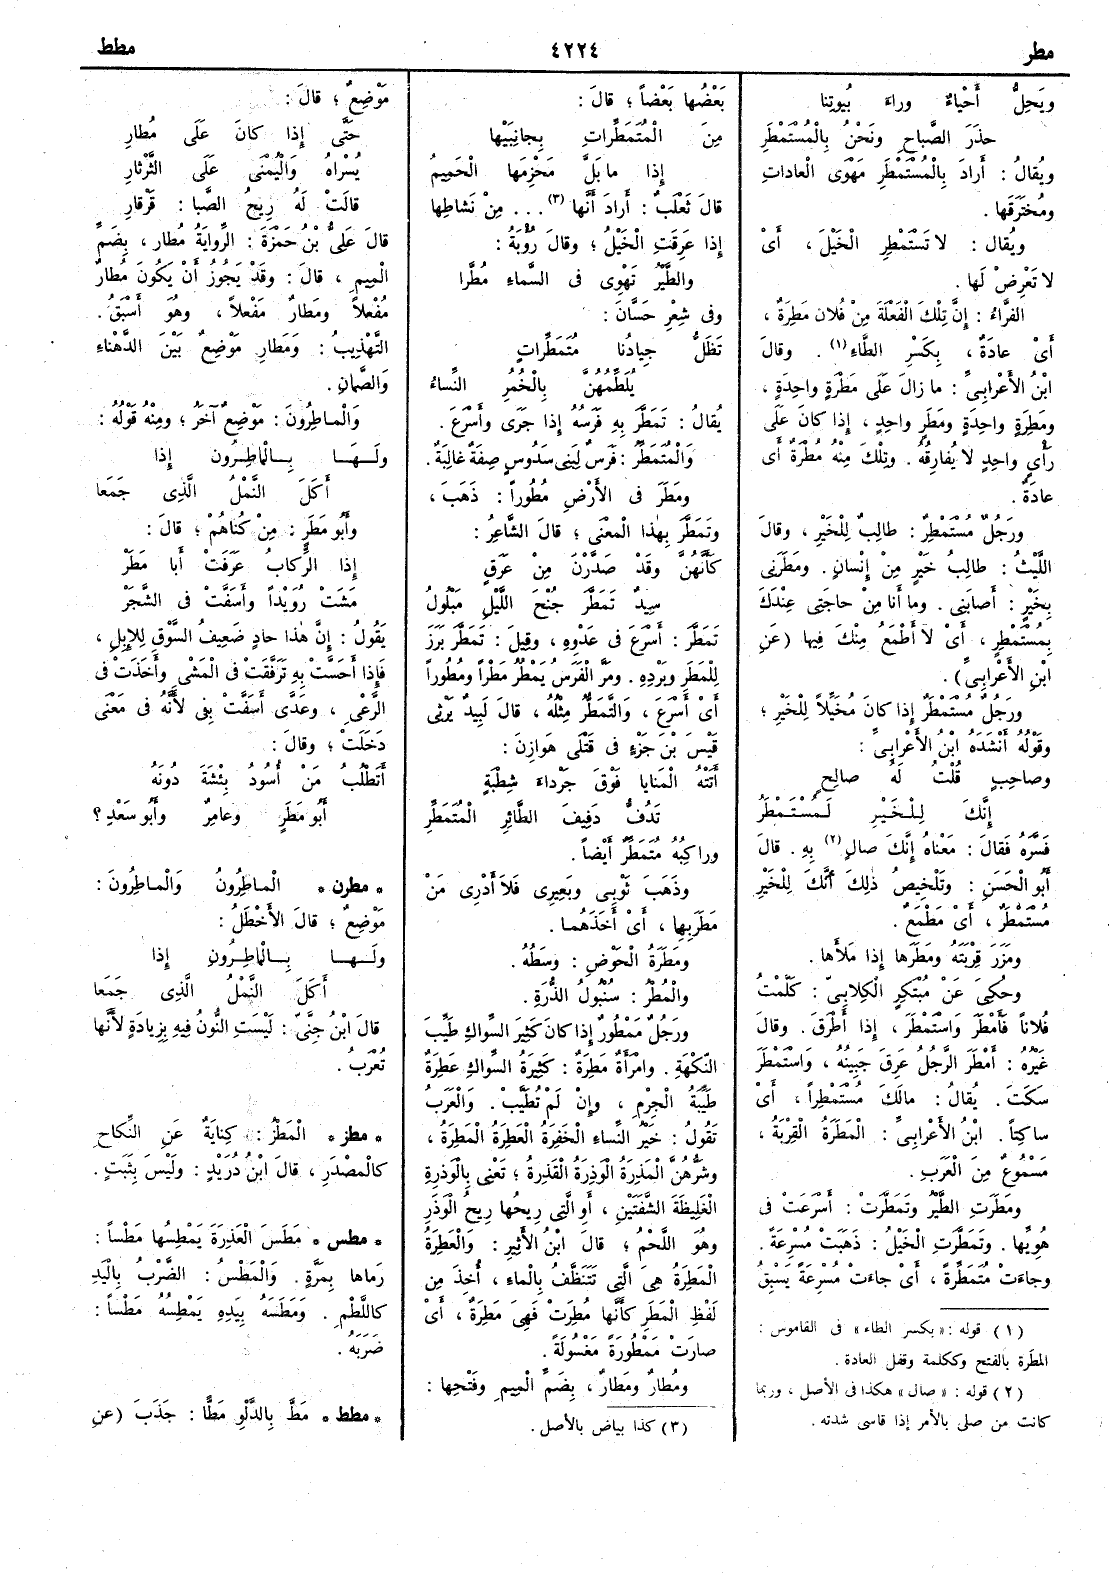 مطر
٤٢٢٤
مطط
ويَحِلُّ أَحْياءٌ وراءَ بُيوتِنا
حَذَرَ الصَّباحِ ونَحْنُ بِالْمُسْتَمْطَرِ
ويُقالُ : أَرادَ بِالْمُسْتَمْطَرِ مَهْوَى العاداتِ
ومُخْتَرَقَها .
ويُقال : لا تَسْتَمْطِرِ الْخَيْلَ ، أَىْ
لا تَعْرِضْ لَها .
الفَرَّاءُ : إِنَّ تِلْكَ الْفَعْلَةَ مِنْ فُلان مَطِرَةٌ ،
أَىْ عادَةٌ ، بِكَسْرِ الطَّاءِ (١) . وقالَ
ابْنُ الأَعْرابِىِّ : ما زالَ عَلَى مَطْرَةٍ واحِدَةٍ ،
ومَطِرَةٍ واحِدَةٍ ومَطَرٍ واحِدٍ ، إِذا كانَ عَلَى
رَأْىٍ واحِدٍ لا يُفارِقُهُ . وتِلْكَ مِنْهُ مُطْرَةٌ أَىْ
عادَةٌ .
ورَجُلٌ مُسْتَمْطِرٌ : طالِبٌ لِلْخَيْرِ ، وقالَ
اللَّيْثُ : طالِبُ خَيْرٍ مِنْ إِنْسانٍ . ومَطَرَنِى
بِخَيْرٍ : أَصابَنِى . وما أَنا مِنْ حاجَتِى عِنْدَكَ
بِمُسْتَمْطِرٍ ، أَىْ لا أَطْمَعُ مِنْكَ فِيها (عَنِ
ابْنِ الأَعْرابِىِّ) .
ورَجُلٌ مُسْتَمْطَرٌ إِذا كانَ مُخَيِّلًا لِلْخَيْرِ ؛
وقَوْلُهُ أَنْشَدَهُ ابْنُ الأَعْرابِىِّ :
وصاحِبٍ قُلْتُ لَهُ صالِحٍ
إِنَّكَ لِلْخَيْرِ لَمُسْتَمْطَرُ
فَسَّرَهُ فَقالَ : مَعْناهُ إِنَّكَ صالٍ (٢) بِهِ . قالَ
أَبُو الْحَسَنِ : وتَلْخِيصُ ذلِكَ أَنَّكَ لِلْخَيْرِ
مُسْتَمْطَرٌ ، أَىْ مَطْمَعٌ .
ومَزَرَ قِرْبَتَهُ ومَطَرَها إِذا مَلأَها .
وحُكِىَ عَنْ مُبْتَكِرٍ الْكِلابِىِّ : كَلَّمْتُ
فُلانًا فَأَمْطَرَ واسْتَمْطَرَ ، إِذا أَطْرَقَ . وقالَ
غَيْرُهُ : أَمْطَرَ الرَّجُلُ عَرِقَ جَبِينُهُ ، واسْتَمْطَرَ
سَكَتَ . يُقالُ : مالَكَ مُسْتَمْطِرًا ، أَىْ
ساكِتًا . ابْنُ الأَعْرابِىِّ : الْمَطَرَةُ القِرْبَةُ ،
مَسْمُوعٌ مِنَ الْعَرَبِ .
ومَطَرَتِ الطَّيْرُ وتَمَطَّرَتْ : أَسْرَعَتْ فى
هُوِيِّها . وتَمَطَّرَتِ الْخَيْلُ : ذَهَبَتْ مُسْرِعَةً .
وجاءَتْ مُتَمَطِّرَةً ، أَىْ جاءَتْ مُسْرِعَةً يَسْبِقُ
(١) قوله : « بكسر الطاء » فى القاموس :
المطرة بالفتح وككلمة وقفل العادة .
(٢) قوله : « صال » هكذا فى الأصل ، وربما
كانت من صلى بالأمر إذا قاسى شدته .
بَعْضُها بَعْضًا ؛ قالَ :
مِنَ الْمُتَمَطِّراتِ بِجانِبَيْها
إِذا ما بَلَّ مَحْزِمَها الْحَمِيمُ
قالَ ثَعْلَبٌ : أَرادَ أَنَّها (٣) . . . مِنْ نَشاطِها
إِذا عَرِقَتِ الْخَيْلُ ؛ وقالَ رُؤْبَةُ :
والطَّيْرُ تَهْوِى فى السَّماءِ مُطَّرا
وفى شِعْرِ حَسَّانَ :
تَظَلُّ جِيادُنا مُتَمَطِّراتٍ
يُلَطِّمُهُنَّ بِالْخُمُرِ النِّساءُ
يُقالُ : تَمَطَّرَ بِهِ فَرَسُهُ إِذا جَرَى وأَسْرَعَ .
والْمُتَمَطِّرُ : فَرَسٌ لِبَنِى سَدُوسٍ صِفَةٌ غالِبَةٌ .
ومَطَرَ فى الأَرْضِ مُطُورًا : ذَهَبَ ،
وتَمَطَّرَ بِهذا الْمَعْنَى ؛ قالَ الشَّاعِرُ :
كَأَنَّهُنَّ وقَدْ صَدَّرْنَ مِنْ عَرَقٍ
سِيدٌ تَمَطَّرَ جُنْحَ اللَّيْلِ مَبْلُولُ
تَمَطَّرَ : أَسْرَعَ فى عَدْوِهِ ، وقِيلَ : تَمَطَّرَ بَرَزَ
لِلْمَطَرِ وبَرْدِهِ . ومَرَّ الْفَرَسُ يَمْطُرُ مَطْرًا ومُطُورًا
أَىْ أَسْرَعَ ، والتَّمَطُّرُ مِثْلُهُ ، قالَ لَبِيدٌ يَرْثِى
قَيْسَ بْنَ جَزْءٍ فى قَتْلَى هَوازِنَ :
أَتَتْهُ الْمَنايا فَوْقَ جَرْداءَ شِطْبَةٍ
تَدُفُّ دَفِيفَ الطَّائِرِ الْمُتَمَطِّرِ
وراكِبُهُ مُتَمَطِّرٌ أَيْضًا .
وذَهَبَ ثَوْبِى وبَعِيرِى فَلا أَدْرِى مَنْ
مَطَرَ بِها ، أَىْ أَخَذَهُما .
ومَطْرَةُ الْحَوْضِ : وسَطُهُ .
والْمُطْرُ : سُنْبُولُ الذُّرَةِ .
ورَجُلٌ مَمْطُورٌ إِذا كانَ كَثِيرَ السِّواكِ طَيِّبَ
النَّكْهَةِ . وامْرَأَةٌ مَطِرَةٌ : كَثِيرَةُ السِّواكِ عَطِرَةٌ
طَيِّبَةُ الْجِرْمِ ، وإِنْ لَمْ تُطَيَّبْ . والْعَرَبُ
تَقُولُ : خَيْرُ النِّساءِ الْخَفِرَةُ الْعَطِرَةُ الْمَطِرَةُ ،
وشَرُّهُنَّ الْمَذِرَةُ الْوَذِرَةُ الْقَذِرَةُ ؛ تَعْنِى بِالْوَذِرَةِ
الْغَلِيظَةَ الشَّفَتَيْنِ ، أَوِ الَّتِى رِيحُها رِيحُ الْوَذَرِ
وهُوَ اللَّحْمُ ؛ قالَ ابْنُ الأَثِيرِ : والْعَطِرَةُ
الْمَطِرَةُ هِىَ الَّتِى تَتَنَظَّفُ بِالْماءِ ، أُخِذَ مِن
لَفْظِ الْمَطَرِ كَأَنَّها مُطِرَتْ فَهِىَ مَطِرَةٌ ، أَىْ
صارَتْ مَمْطُورَةً مَغْسُولَةً .
ومُطارٌ ومَطارٌ ، بِضَمِّ الْمِيمِ وفَتْحِها :
(٣) كذا بياض بالأصل .
مَوْضِعٌ ؛ قالَ :
حَتَّى إِذا كانَ عَلَى مُطارِ
يُسْراهُ والْيُمْنَى عَلَى الثَّرْثارِ
قالَتْ لَهُ رِيحُ الصَّبا : قَرْقارِ
قالَ عَلِىُّ بْنُ حَمْزَةَ : الرِّوايَةُ مُطار ، بِضَمِّ
الْمِيمِ ، قالَ : وقَدْ يَجُوزُ أَنْ يَكُونَ مُطارٌ
مُفْعَلًا ومَطارٌ مَفْعَلًا ، وهُوَ أَسْبَقُ .
التَّهْذِيبُ : ومَطارِ مَوْضِعٌ بَيْنَ الدَّهْناءِ
والصَّمانِ .
والْماطِرُونَ : مَوْضِعٌ آخَرُ ؛ ومِنْهُ قَوْلُهُ :
ولَها بِالْماطِرُونِ إِذا
أَكَلَ النَّمْلُ الَّذِى جَمَعَا
وأَبُو مَطَرٍ : مِنْ كُناهُمْ ؛ قالَ :
إِذا الرِّكابُ عَرَفَتْ أَبا مَطَرْ
مَشَتْ رُوَيْدًا وأَسَفَّتْ فى الشَّجَرْ
يَقُولُ : إِنَّ هذا حادٍ ضَعِيفُ السَّوْقِ لِلإِبِلِ ،
فَإِذا أَحَسَّتْ بِهِ تَرَفَّقَتْ فى الْمَشْىِ وأَخَذَتْ فى
الرَّعْىِ ، وعَدَّى أَسَفَّتْ بِفِى لأَنَّهُ فى مَعْنَى
دَخَلَتْ ؛ وقالَ :
أَتَطْلُبُ مَنْ أُسُودُ بِئْشَةَ دُونَهُ
أَبُو مَطَرٍ وعامِرٌ وأَبُو سَعْدِ ؟
• مطرن • الْماطِرُونُ والْماطِرُونَ :
مَوْضِعٌ ؛ قالَ الأَخْطَلُ :
ولَها بِالْماطِرُونِ إِذا
أَكَلَ النَّمْلُ الَّذِى جَمَعا
قالَ ابْنُ جِنِّى : لَيْسَتِ النُّونُ فِيهِ بِزِيادَةٍ لأَنَّها
تُعْرَبُ .
• مطز • الْمَطْزُ : كِنايَةٌ عَنِ النِّكاحِ
كالْمَصْدَرِ ، قالَ ابْنُ دُرَيْدٍ : ولَيْسَ بِثَبَتٍ .
• مطس • مَطَسَ الْعَذِرَةَ يَمْطِسُها مَطْسًا :
رَماها بِمَرَّةٍ . والْمَطْسُ : الضَّرْبُ بِالْيَدِ
كاللَّطْمِ . ومَطَسَهُ بِيَدِهِ يَمْطِسُهُ مَطْسًا :
ضَرَبَهُ .
• مطط • مَطَّ بِالدَّلْوِ مَطًّا : جَذَبَ (عَنِ